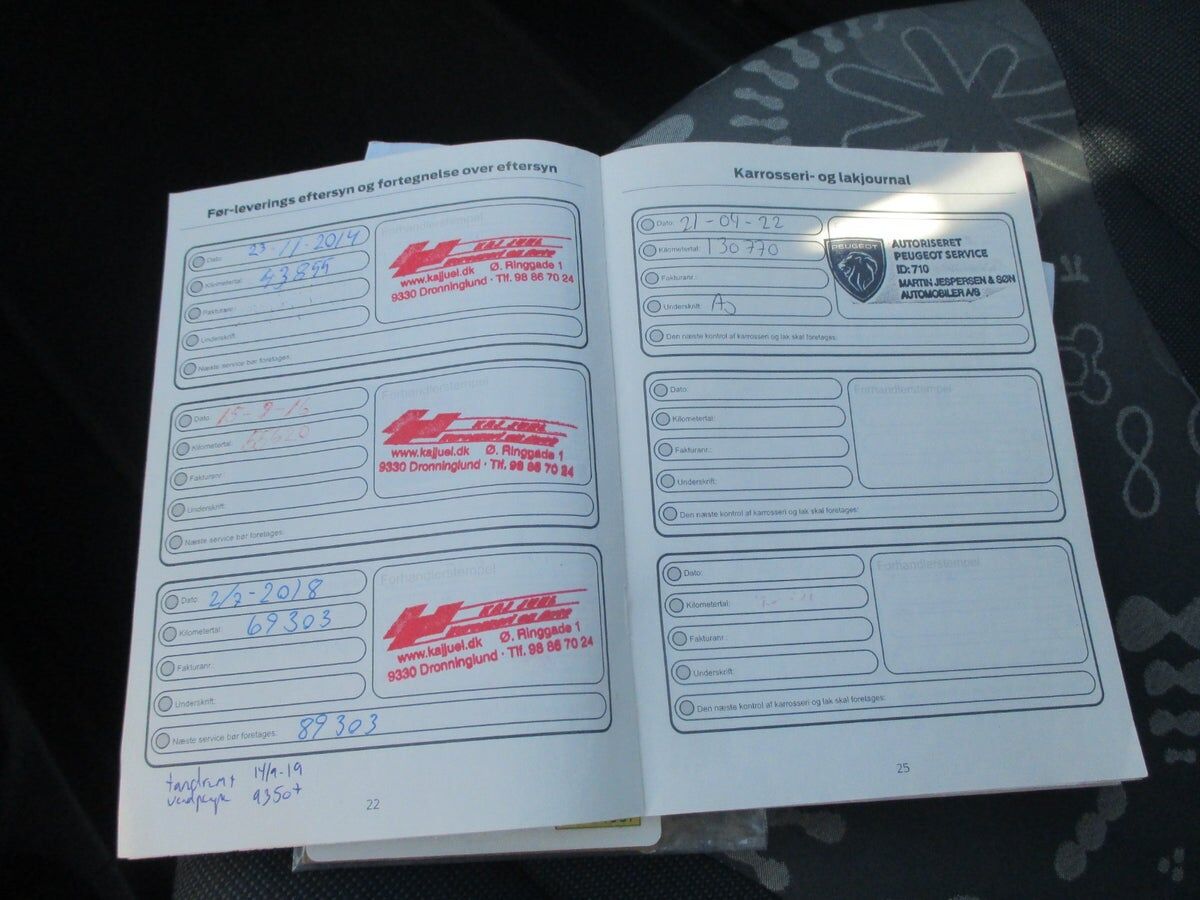 Før-leverings eftersyn og fortegnelse over eftersyn
Dato: 23-11-2014
Kilometertal: 43855
Fakturanr.:
Underskrift:
Næste service bør foretages:
Forhandlerstempel
KAJ JUUL
www.kajjuel.dk Ø. Ringgade 1
9330 Dronninglund · Tlf. 98 86 70 24
Dato: 15-9-16
Kilometertal:
Fakturanr.:
Underskrift:
Næste service bør foretages:
Forhandlerstempel
www.kajjuel.dk Ø. Ringgade 1
9330 Dronninglund · Tlf. 98 86 70 24
Dato: 2/7-2018
Kilometertal: 69303
Fakturanr.:
Underskrift:
Næste service bør foretages: 89303
Forhandlerstempel
www.kajjuel.dk Ø. Ringgade 1
9330 Dronninglund · Tlf. 98 86 70 24
tandrem + 14/9-19
22
Karrosseri- og lakjournal
Dato: 21-04-22
Kilometertal: 130770
Fakturanr.:
Underskrift:
Den næste kontrol af karrosseri og lak skal foretages:
PEUGEOT
AUTORISERET
PEUGEOT SERVICE
ID:710
MARTIN JESPERSEN & SØN
AUTOMOBILER A/S
Dato:
Kilometertal:
Fakturanr.:
Underskrift:
Den næste kontrol af karrosseri og lak skal foretages:
Forhandlerstempel
Dato:
Kilometertal:
Fakturanr.:
Underskrift:
Den næste kontrol af karrosseri og lak skal foretages:
Forhandlerstempel
25